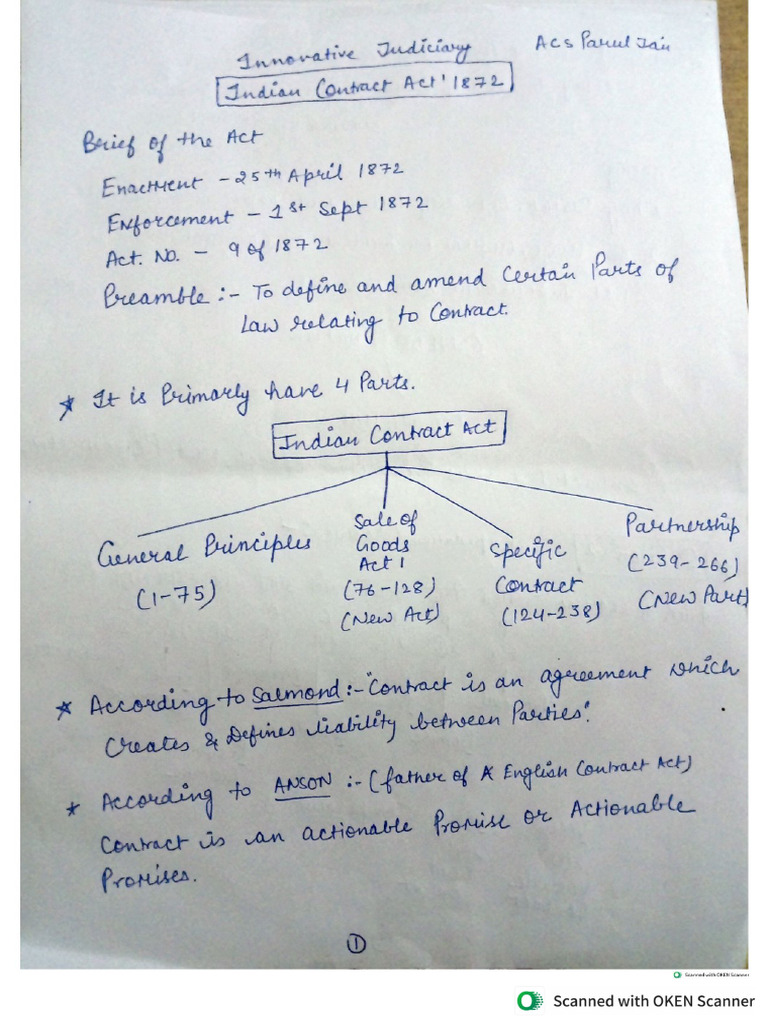 Innovative Judiciary
ACS Parul Jain
Indian Contract Act' 1872
Brief of the Act
Enactment - 25th April 1872
Enforcement - 1st Sept 1872
Act. No. - 9 of 1872
Preamble :- To define and amend Certain Parts of
Law relating to Contract.
* It is Primarly have 4 Parts.
Indian Contract Act
General Principles
(1-75)
Sale of
Goods
Act 1
(76-128)
(New Act)
Specific
Contract
(124-238)
Partnership
(239-266)
(New Part)
* According to Salmond :- "Contract is an agreement which
Creates & Defines liability between Parties".
* According to ANSON :- (father of A English Contract Act)
Contract is an actionable Promise or Actionable
Promises.
1
Scanned with OKEN Scanner
Scanned with OKEN Scanner